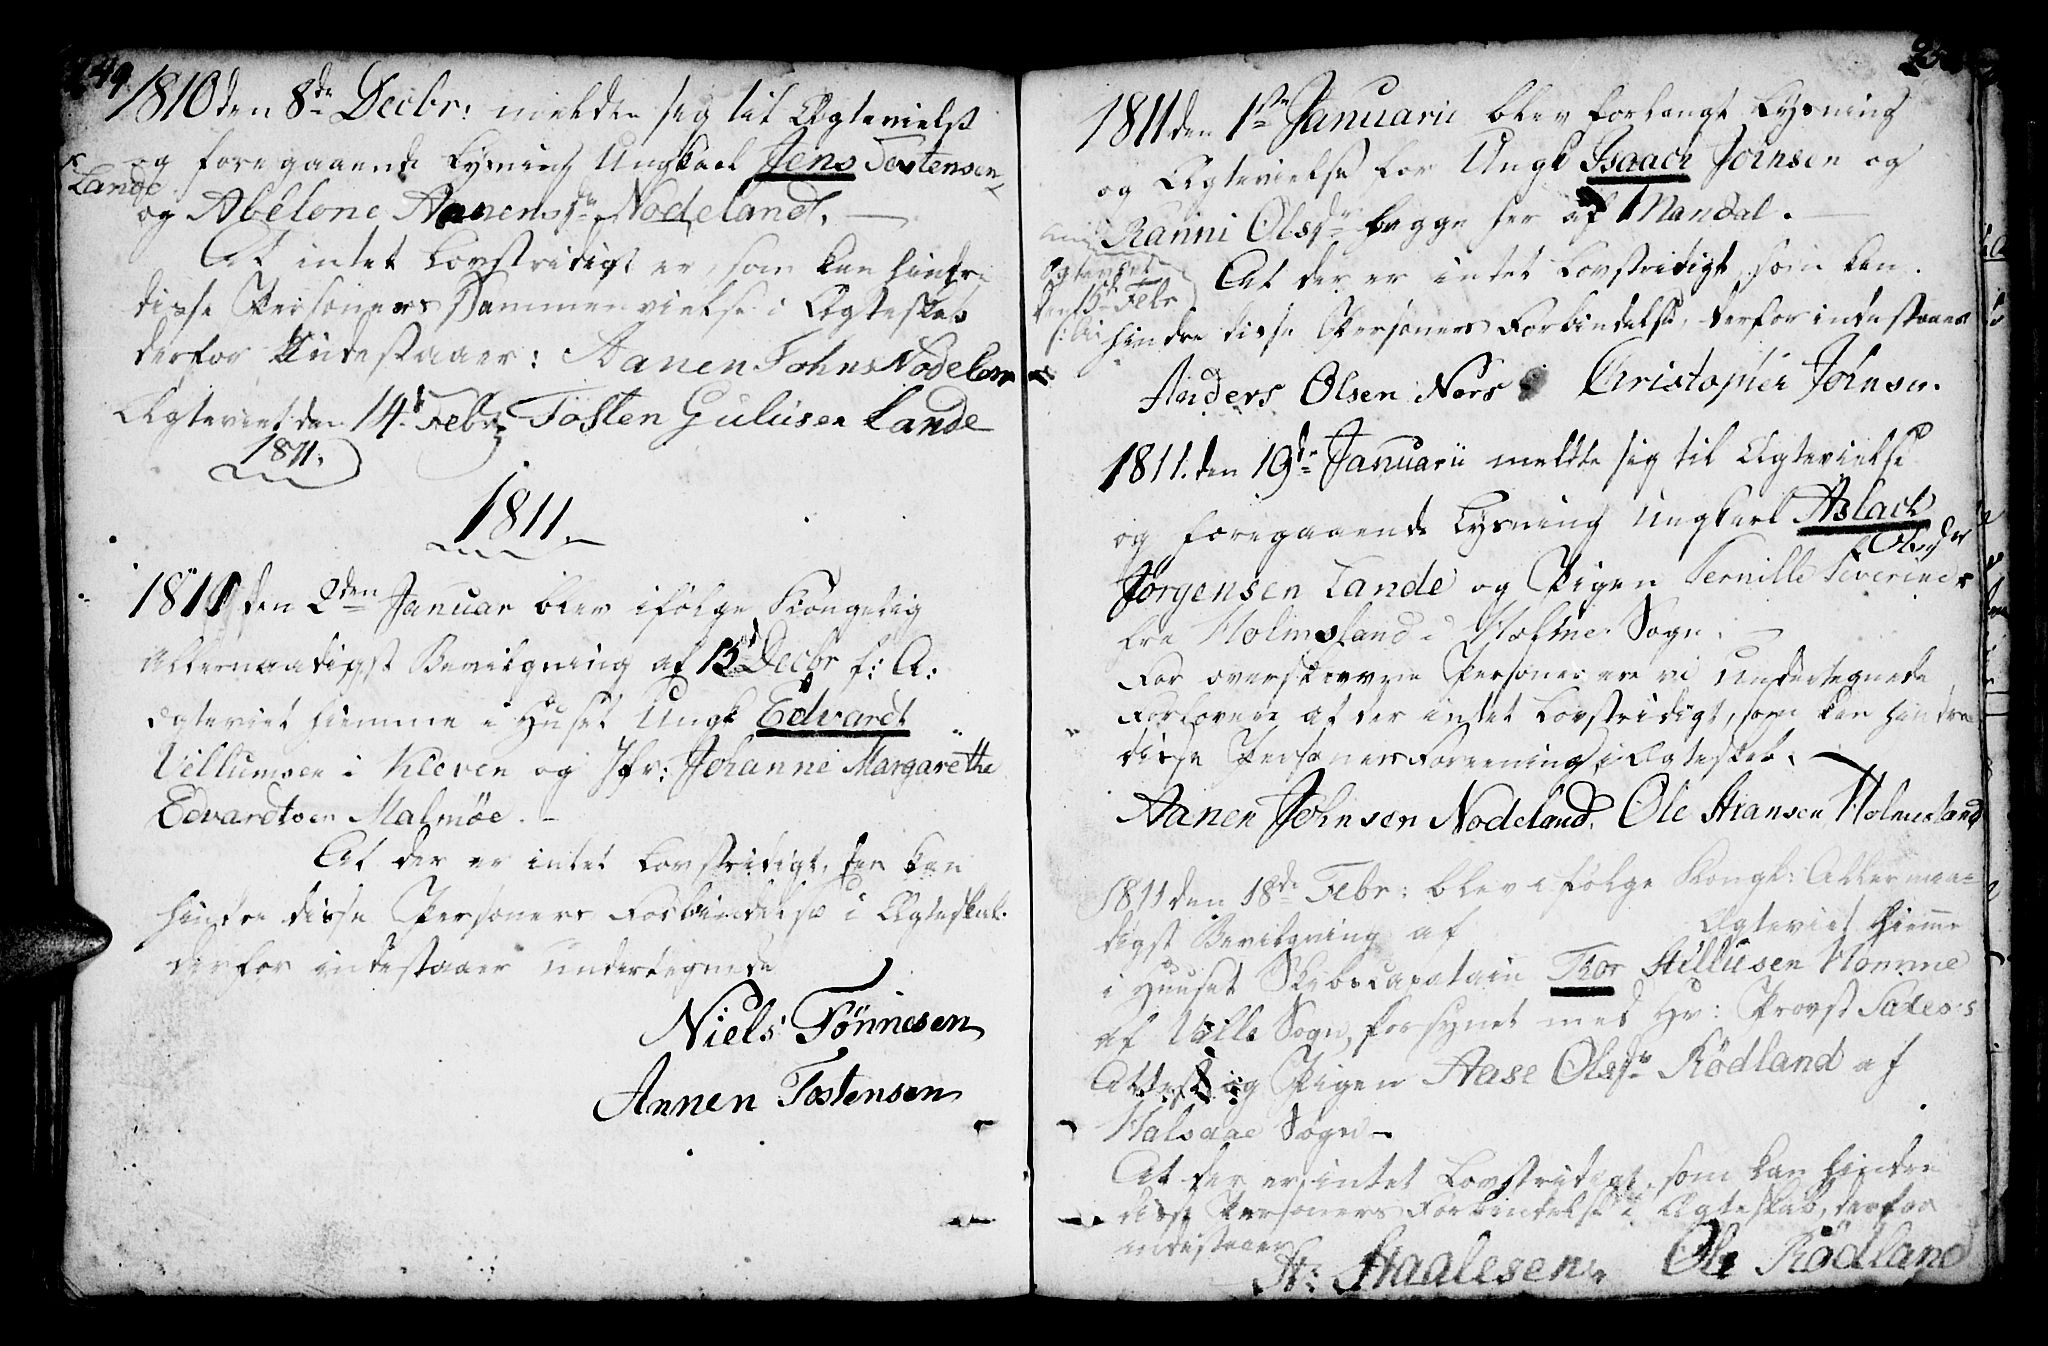 249.
1810 den 8de Decbr: meldte sig til Ægtevielse
og foregaaende Lysning Ungkael Jens Tostensen
x Lande
og Abelone Aanensdr Nodeland. —
At intet Lovstridigt er, som kan hindre
disse Personers Sammenvielse i Ægteskab
derfor indestaaer: Aanen Johns Nodeland
Ægteviet den 14d Febr Tosten Gulusen Lande
1811.
1811.
1811 den 2den Januar blev ifølge Kongelig
Allernaadigst Bevilgning af 13d Decbr f: A:
ægteviet hiemme i Huset Ungk Edvardt
Villumsen i Kleven og Jfr: Johanne Margarethe
Edvardtsen Malmöe. —
At der er intet Lovstridigt, der kan
hindre disse Personers Forbindelse i Ægteskab.
derfor indestaaer undertegnede
Niels Tönnesen
Annen Tostensen
1811 den 1ste Januarii blev forlangt Lysning
og Ægtevielse for Ungk Isaach Johnsen og
Ranni Olsdr begge her af Mandal. —
At der er intet Lovstridigt, som kan
Ægteviet
den 15d Febr
hindre disse Personers Forbindelse, derfor indestaaer
Anders Olsen Nors Christopher Johnsen.
1811. den 19de Januarii meldte sig til Ægtevielse
og foregaaende Lysning Ungkarl Aslach
x Olsdr
Jörgensen Lande og Pigen Pernille Severine x
fra Holmsland i Holme Sogn. —
For overskrevne Personer ere vi undertegnede
Forlovere at der intet Lovstridigt, som kan hindre
disse Personers Foreening i Ægteskab. —
Aanen Johnsen Nodeland. Ole Hansen Holmesland
1811 den 18de Febr: blev i følge Kongl: Allernaa-
digst Bevilgning af Ægteviet hiemme
i Huuset Skibscapatain Thor Stillusen Homme
af Valle Sogn, forsynet med Hr: Provst Saxes's
Attest og Pigen Aase Olsdr Rödland af
Halsaae Sogn —
At der er intet Lovstridigt, som kan hindre
disse Personers Forbindelse i Ægteskab, derfor
indestaaer
St: Staalesen. Ole Rödland